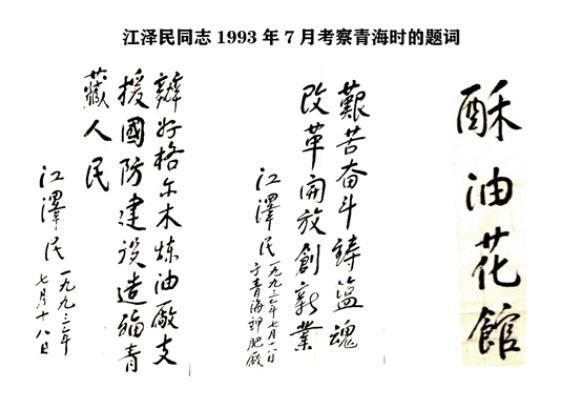 江泽民同志 1993 年 7 月考察青海时的题词
酥油花館
艱苦奮斗鑄盐魂
改革開放創新業
江澤民 一九九三年七月十八日
于青海鉀肥廠
辦好格尔木炼油廠支
援國防建設造福青
藏人民
江澤民 一九九三年
七月十八日